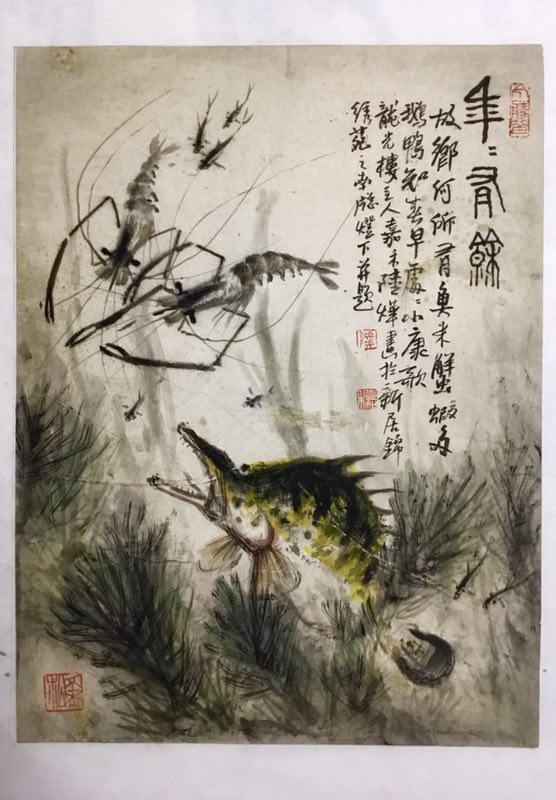 年〻有餘
故鄉何所有魚米蟹蝦多
鵝鴨知春早處〻小康歌
龍光樓主人嘉禾陸燁畫於新居錦
繡苑之南牕燈下并題